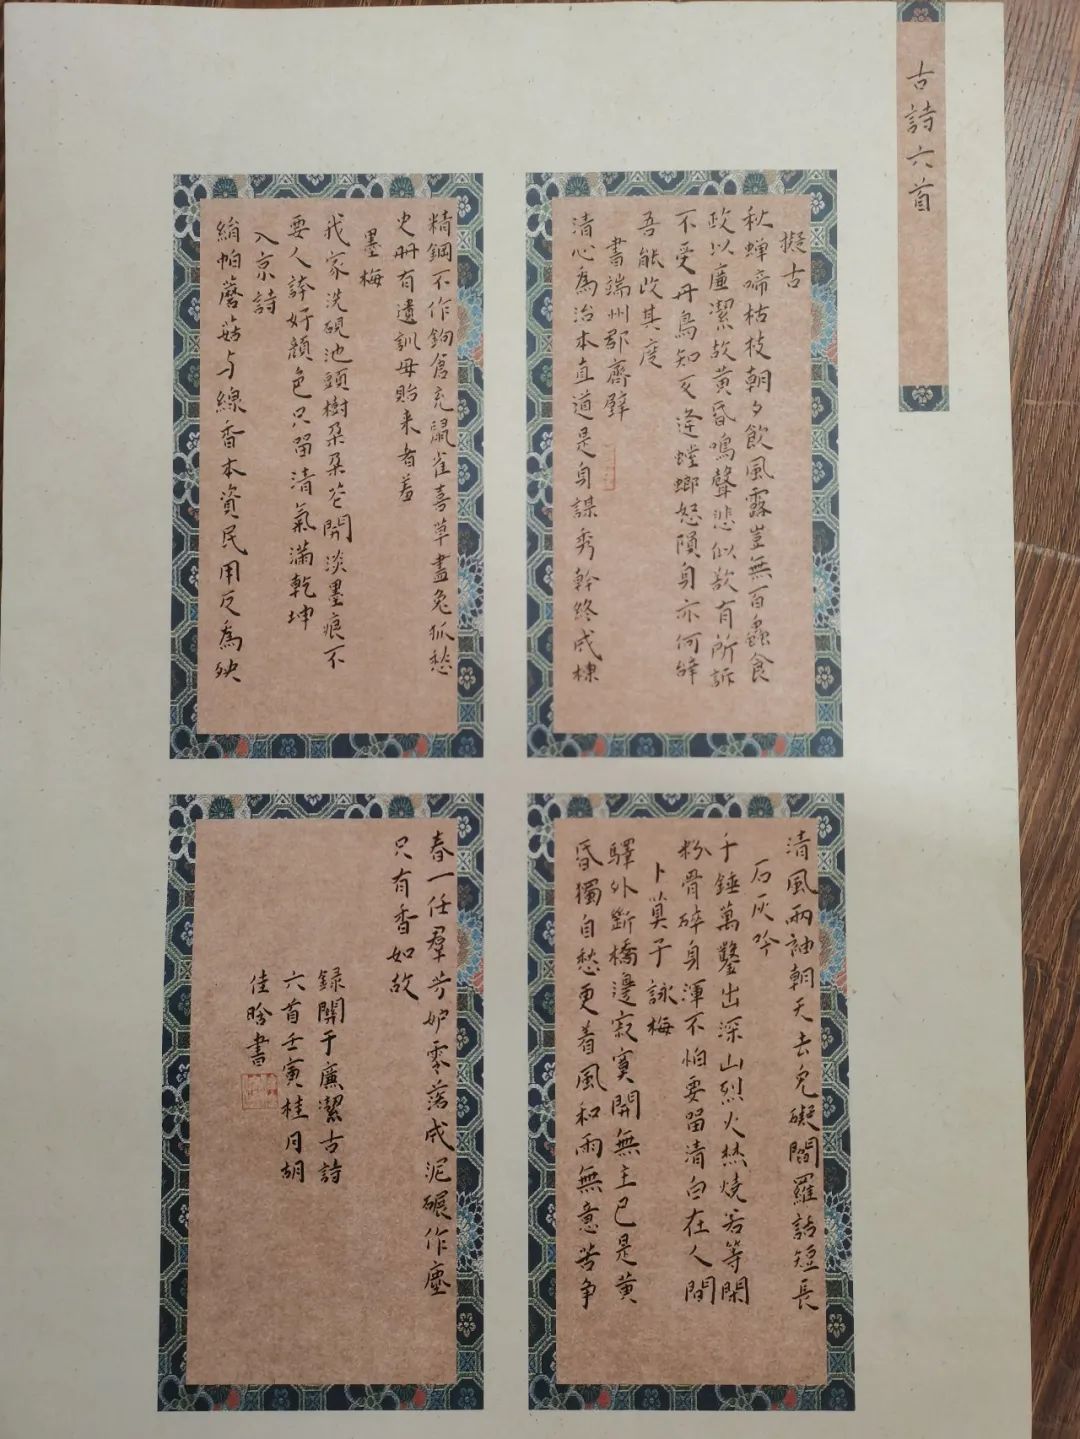 古詩六首
擬古
秋蟬啼枯枝朝夕飲風露豈無百蟲食
政以廉潔故黃昏鳴聲悲似欲有所訴
不受丹鳥知反逢螳螂怒隕身亦何辭
吾能改其度
書端州郡齋壁
清心為治本直道是身謀秀幹終成棟
精鋼不作鉤倉充鼠雀喜草盡兔狐愁
史冊有遺訓毋貽来者羞
墨梅
我家洗硯池頭樹朵朵花開淡墨痕不
要人誇好顏色只留清氣滿乾坤
入京詩
絹帕蘑菇与線香本資民用反為殃
清風兩袖朝天去免礙閻羅話短長
石灰吟
千錘萬鑿出深山烈火焚燒若等閑
粉骨碎身渾不怕要留清白在人間
卜算子詠梅
驛外斷橋邊寂寞開無主已是黃
昏獨自愁更着風和雨無意苦争
春一任羣芳妒零落成泥碾作塵
只有香如故
録關于廉潔古詩
六首壬寅桂月胡
佳晗書